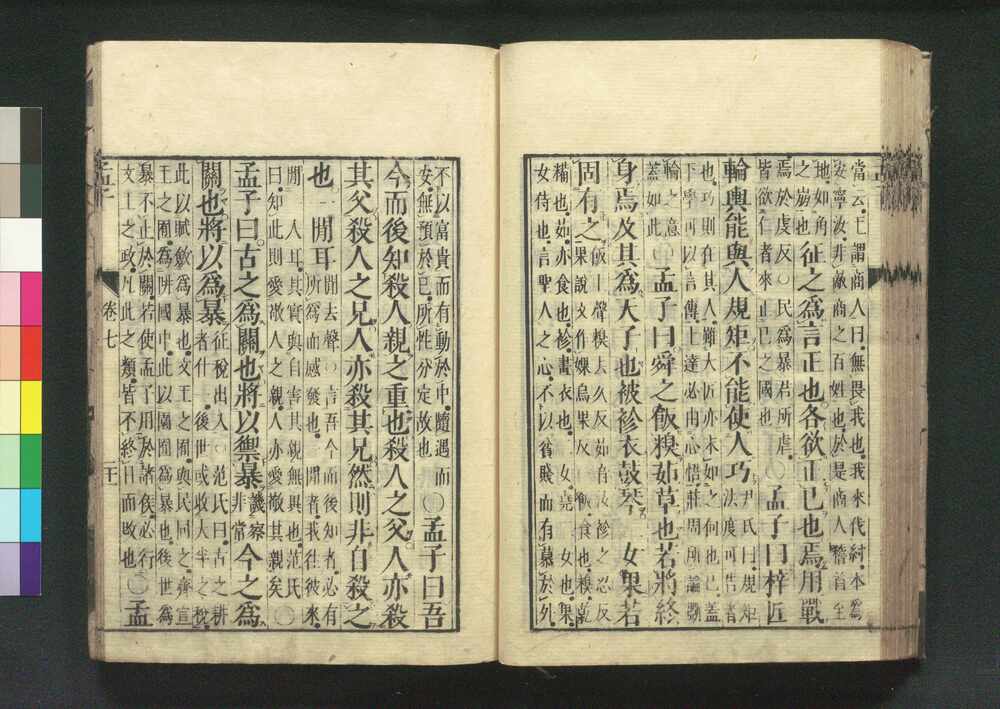 當云王謂商人曰無畏我也我來伐紂本爲
安寧汝非敵商之百姓也於是商人稽首至
地如角
之崩也
征之爲言正也各欲正己也焉用戰
焉於虔反○民爲暴君所虐
皆欲仁者來正己之國也
○孟子曰梓匠
輪輿能與人規矩不能使人巧
尹氏曰規矩
法度可告者
也巧則在其人雖大匠亦末如之何也已蓋
下學可以言傳上達必由心悟莊周所論斲
輪之意
蓋如此
○孟子曰舜之飯糗茹草也若將終
身焉及其爲天子也被袗衣鼓琴二女果若
固有之
飯上聲糗去久反茹音汝袗之忍反
果說文作婐烏果反○飯食也糗乾
糒也茹亦食也袗畫衣也二女堯二女也果
女侍也言聖人之心不以貧賤而有慕於外
不以富貴而有動於中隨遇而
安無預於己所性分定故也
○孟子曰吾
今而後知殺人親之重也殺人之父人亦殺
其父殺人之兄人亦殺其兄然則非自殺之
也一閒耳
閒去聲○言吾今而後知者必有
所爲而感發也一閒者我往彼來
閒一人耳其實與自害其親無異也范氏
曰知此則愛敬人之親人亦愛敬其親矣
○
孟子曰古之爲關也將以禦暴
譏察
非常
今之爲
關也將以爲暴
征稅出入○范氏曰古之耕
者什一後世或收大半之稅
此以賦斂爲暴也文王之囿與民同之齊宣
王之囿爲阱國中此以園囿爲暴也後世爲
暴不止於關若使孟子用於諸侯必行
文王之政凡此之類皆不終日而改也
○孟
卷七